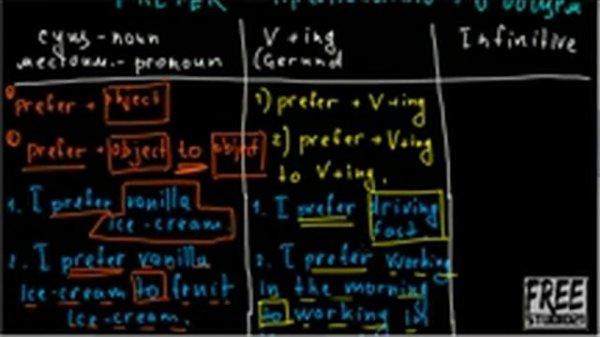 PREFER
сущ - noun
местоим. - pronoun
1) prefer + object
2) prefer + object to object
1. I prefer vanilla
ice-cream.
2. I prefer vanilla
ice-cream to fruit
ice-cream.
V + ing
(Gerund
1) prefer + V+ing
2) prefer + V+ing
to V+ing.
1. I prefer driving
fast
2. I prefer working
in the morning
to working in
Infinitive
FREE